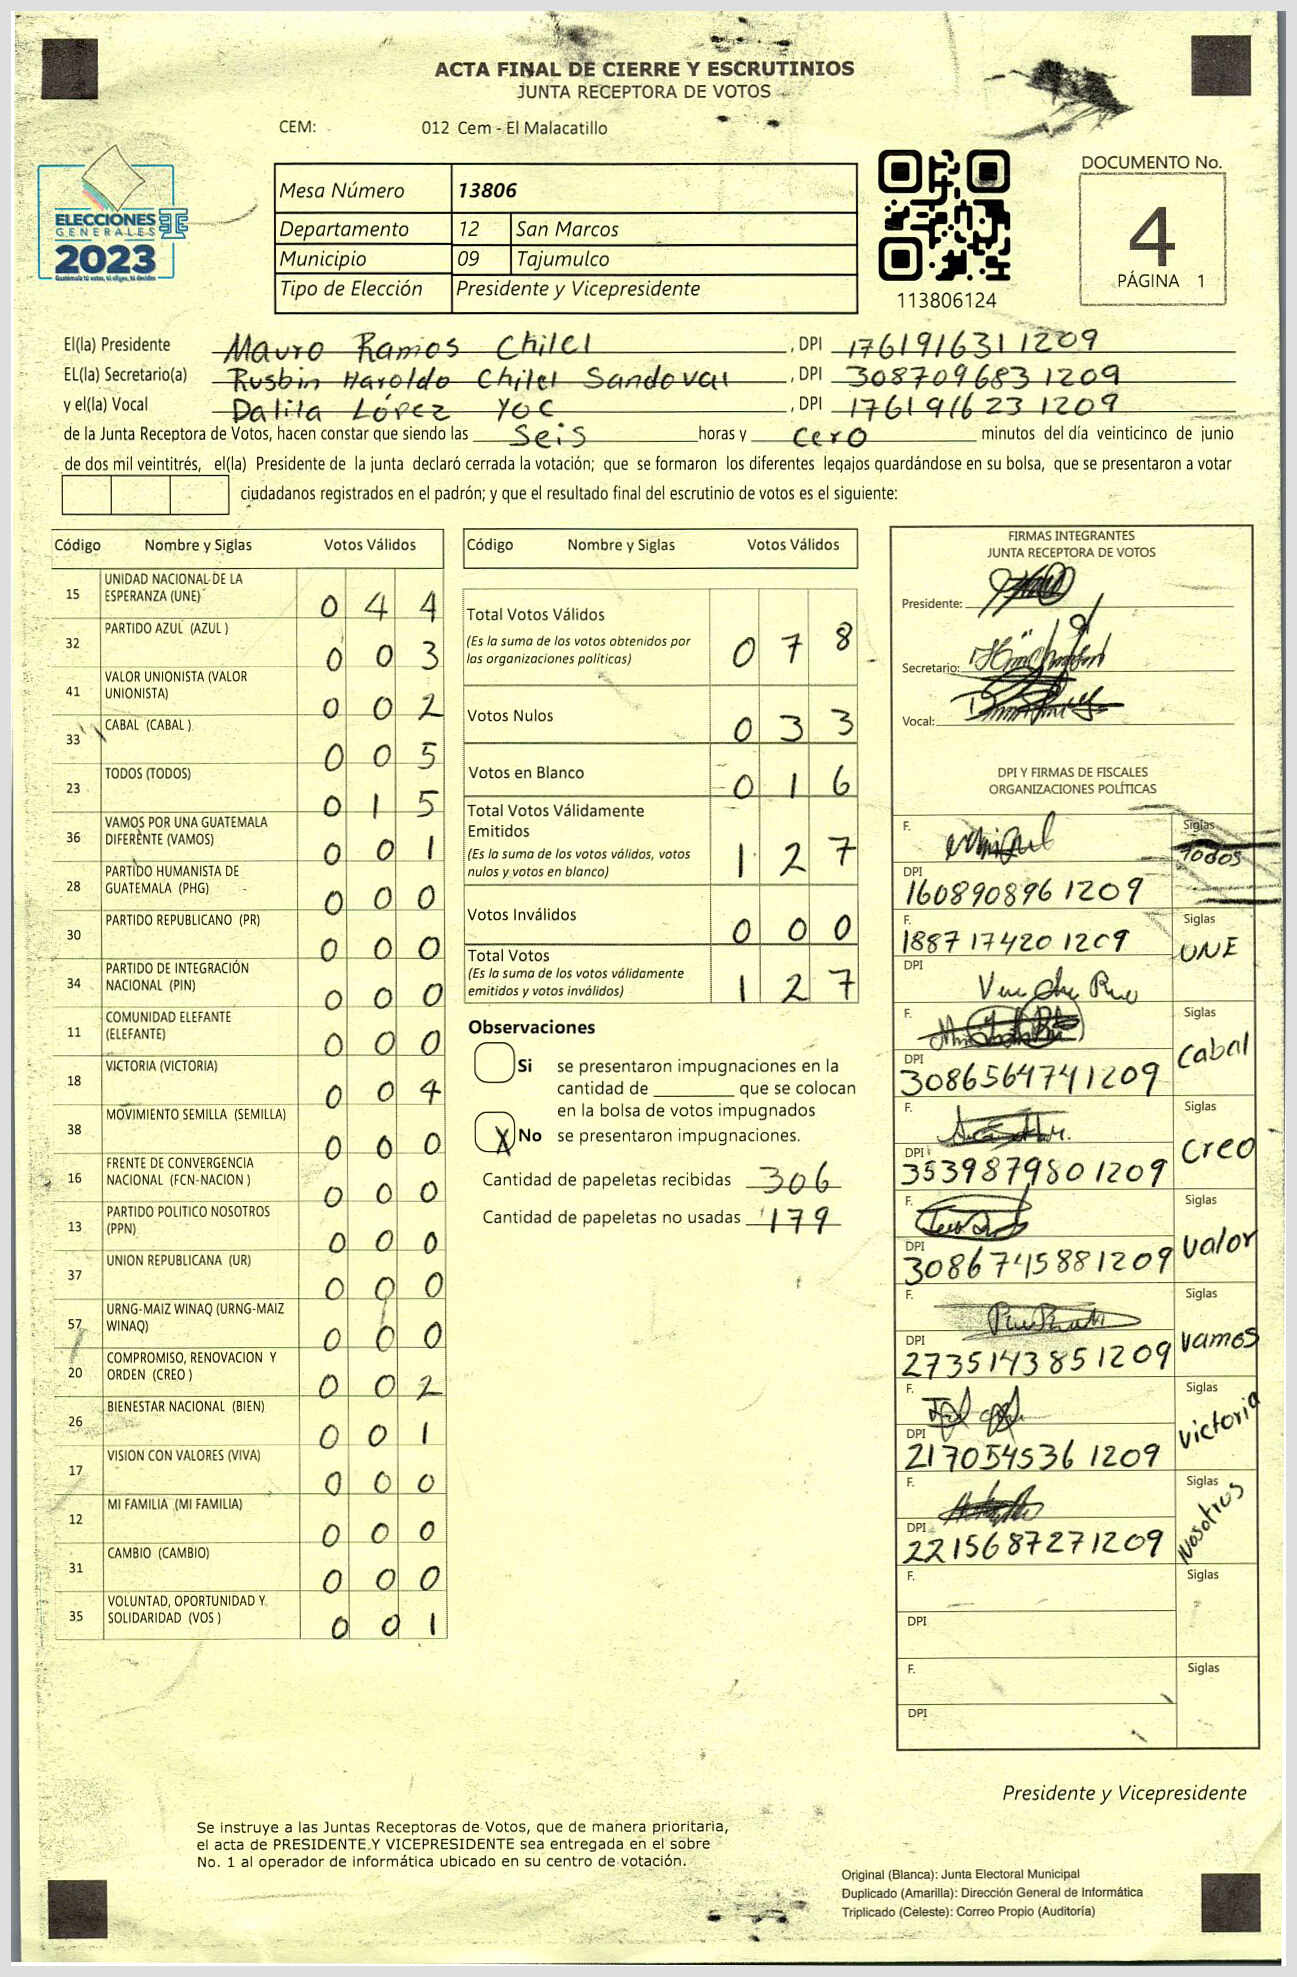 ACTA FINAL DE CIERRE Y ESCRUTINIOS
JUNTA RECEPTORA DE VOTOS
CEM: 012 Cem - El Malacatillo
ELECCIONES
GENERALES
2023
Guatemala tú votas, tú eliges, tú decides
Mesa Número 13806
Departamento 12 San Marcos
Municipio 09 Tajumulco
Tipo de Elección Presidente y Vicepresidente
113806124
DOCUMENTO No.
4
PÁGINA 1
El(la) Presidente Mauro Ramos Chilel , DPI 1761916311209
EL(la) Secretario(a) Rusbin Haroldo Chilel Sandoval , DPI 3087096831209
y el(la) Vocal Dalila López Yoc , DPI 1761916231209
de la Junta Receptora de Votos, hacen constar que siendo las Seis horas y cero minutos del día veinticinco de junio
de dos mil veintitrés, el(la) Presidente de la junta declaró cerrada la votación; que se formaron los diferentes legajos guardándose en su bolsa, que se presentaron a votar
ciudadanos registrados en el padrón; y que el resultado final del escrutinio de votos es el siguiente:
Código Nombre y Siglas Votos Válidos
15 UNIDAD NACIONAL DE LA
ESPERANZA (UNE) 0 4 4
32 PARTIDO AZUL (AZUL ) 0 0 3
41 VALOR UNIONISTA (VALOR
UNIONISTA) 0 0 2
33 CABAL (CABAL ) 0 0 5
23 TODOS (TODOS) 0 1 5
36 VAMOS POR UNA GUATEMALA
DIFERENTE (VAMOS) 0 0 1
28 PARTIDO HUMANISTA DE
GUATEMALA (PHG) 0 0 0
30 PARTIDO REPUBLICANO (PR) 0 0 0
34 PARTIDO DE INTEGRACIÓN
NACIONAL (PIN) 0 0 0
11 COMUNIDAD ELEFANTE
(ELEFANTE) 0 0 0
18 VICTORIA (VICTORIA) 0 0 4
38 MOVIMIENTO SEMILLA (SEMILLA) 0 0 0
16 FRENTE DE CONVERGENCIA
NACIONAL (FCN-NACION ) 0 0 0
13 PARTIDO POLITICO NOSOTROS
(PPN) 0 0 0
37 UNION REPUBLICANA (UR) 0 0 0
57 URNG-MAIZ WINAQ (URNG-MAIZ
WINAQ) 0 0 0
20 COMPROMISO, RENOVACION Y
ORDEN (CREO ) 0 0 2
26 BIENESTAR NACIONAL (BIEN) 0 0 1
17 VISION CON VALORES (VIVA) 0 0 0
12 MI FAMILIA (MI FAMILIA) 0 0 0
31 CAMBIO (CAMBIO) 0 0 0
35 VOLUNTAD, OPORTUNIDAD Y
SOLIDARIDAD (VOS ) 0 0 1
Código Nombre y Siglas Votos Válidos
Total Votos Válidos
(Es la suma de los votos obtenidos por
las organizaciones políticas) 0 7 8
Votos Nulos 0 3 3
Votos en Blanco 0 1 6
Total Votos Válidamente
Emitidos
(Es la suma de los votos válidos, votos
nulos y votos en blanco) 1 2 7
Votos Inválidos 0 0 0
Total Votos
(Es la suma de los votos válidamente
emitidos y votos inválidos) 1 2 7
Observaciones
Si se presentaron impugnaciones en la
cantidad de ________ que se colocan
en la bolsa de votos impugnados
X No se presentaron impugnaciones.
Cantidad de papeletas recibidas 306
Cantidad de papeletas no usadas 179
FIRMAS INTEGRANTES
JUNTA RECEPTORA DE VOTOS
Presidente:
Secretario:
Vocal:
DPI Y FIRMAS DE FISCALES
ORGANIZACIONES POLÍTICAS
F. Siglas
Todos
DPI
1608908961209
F. Siglas
1887174201209
UNE
DPI
F. Siglas
Cabal
DPI
3086564741209
F. Siglas
Creo
DPI
3539879801209
F. Siglas
valor
DPI
3086745881209
F. Siglas
vamos
DPI
2735143851209
F. Siglas
victoria
DPI
2170545361209
F. Siglas
Nosotros
DPI
2215687271209
F. Siglas
DPI
F. Siglas
DPI
Presidente y Vicepresidente
Se instruye a las Juntas Receptoras de Votos, que de manera prioritaria,
el acta de PRESIDENTE Y VICEPRESIDENTE sea entregada en el sobre
No. 1 al operador de informática ubicado en su centro de votación.
Original (Blanca): Junta Electoral Municipal
Duplicado (Amarilla): Dirección General de Informática
Triplicado (Celeste): Correo Propio (Auditoría)